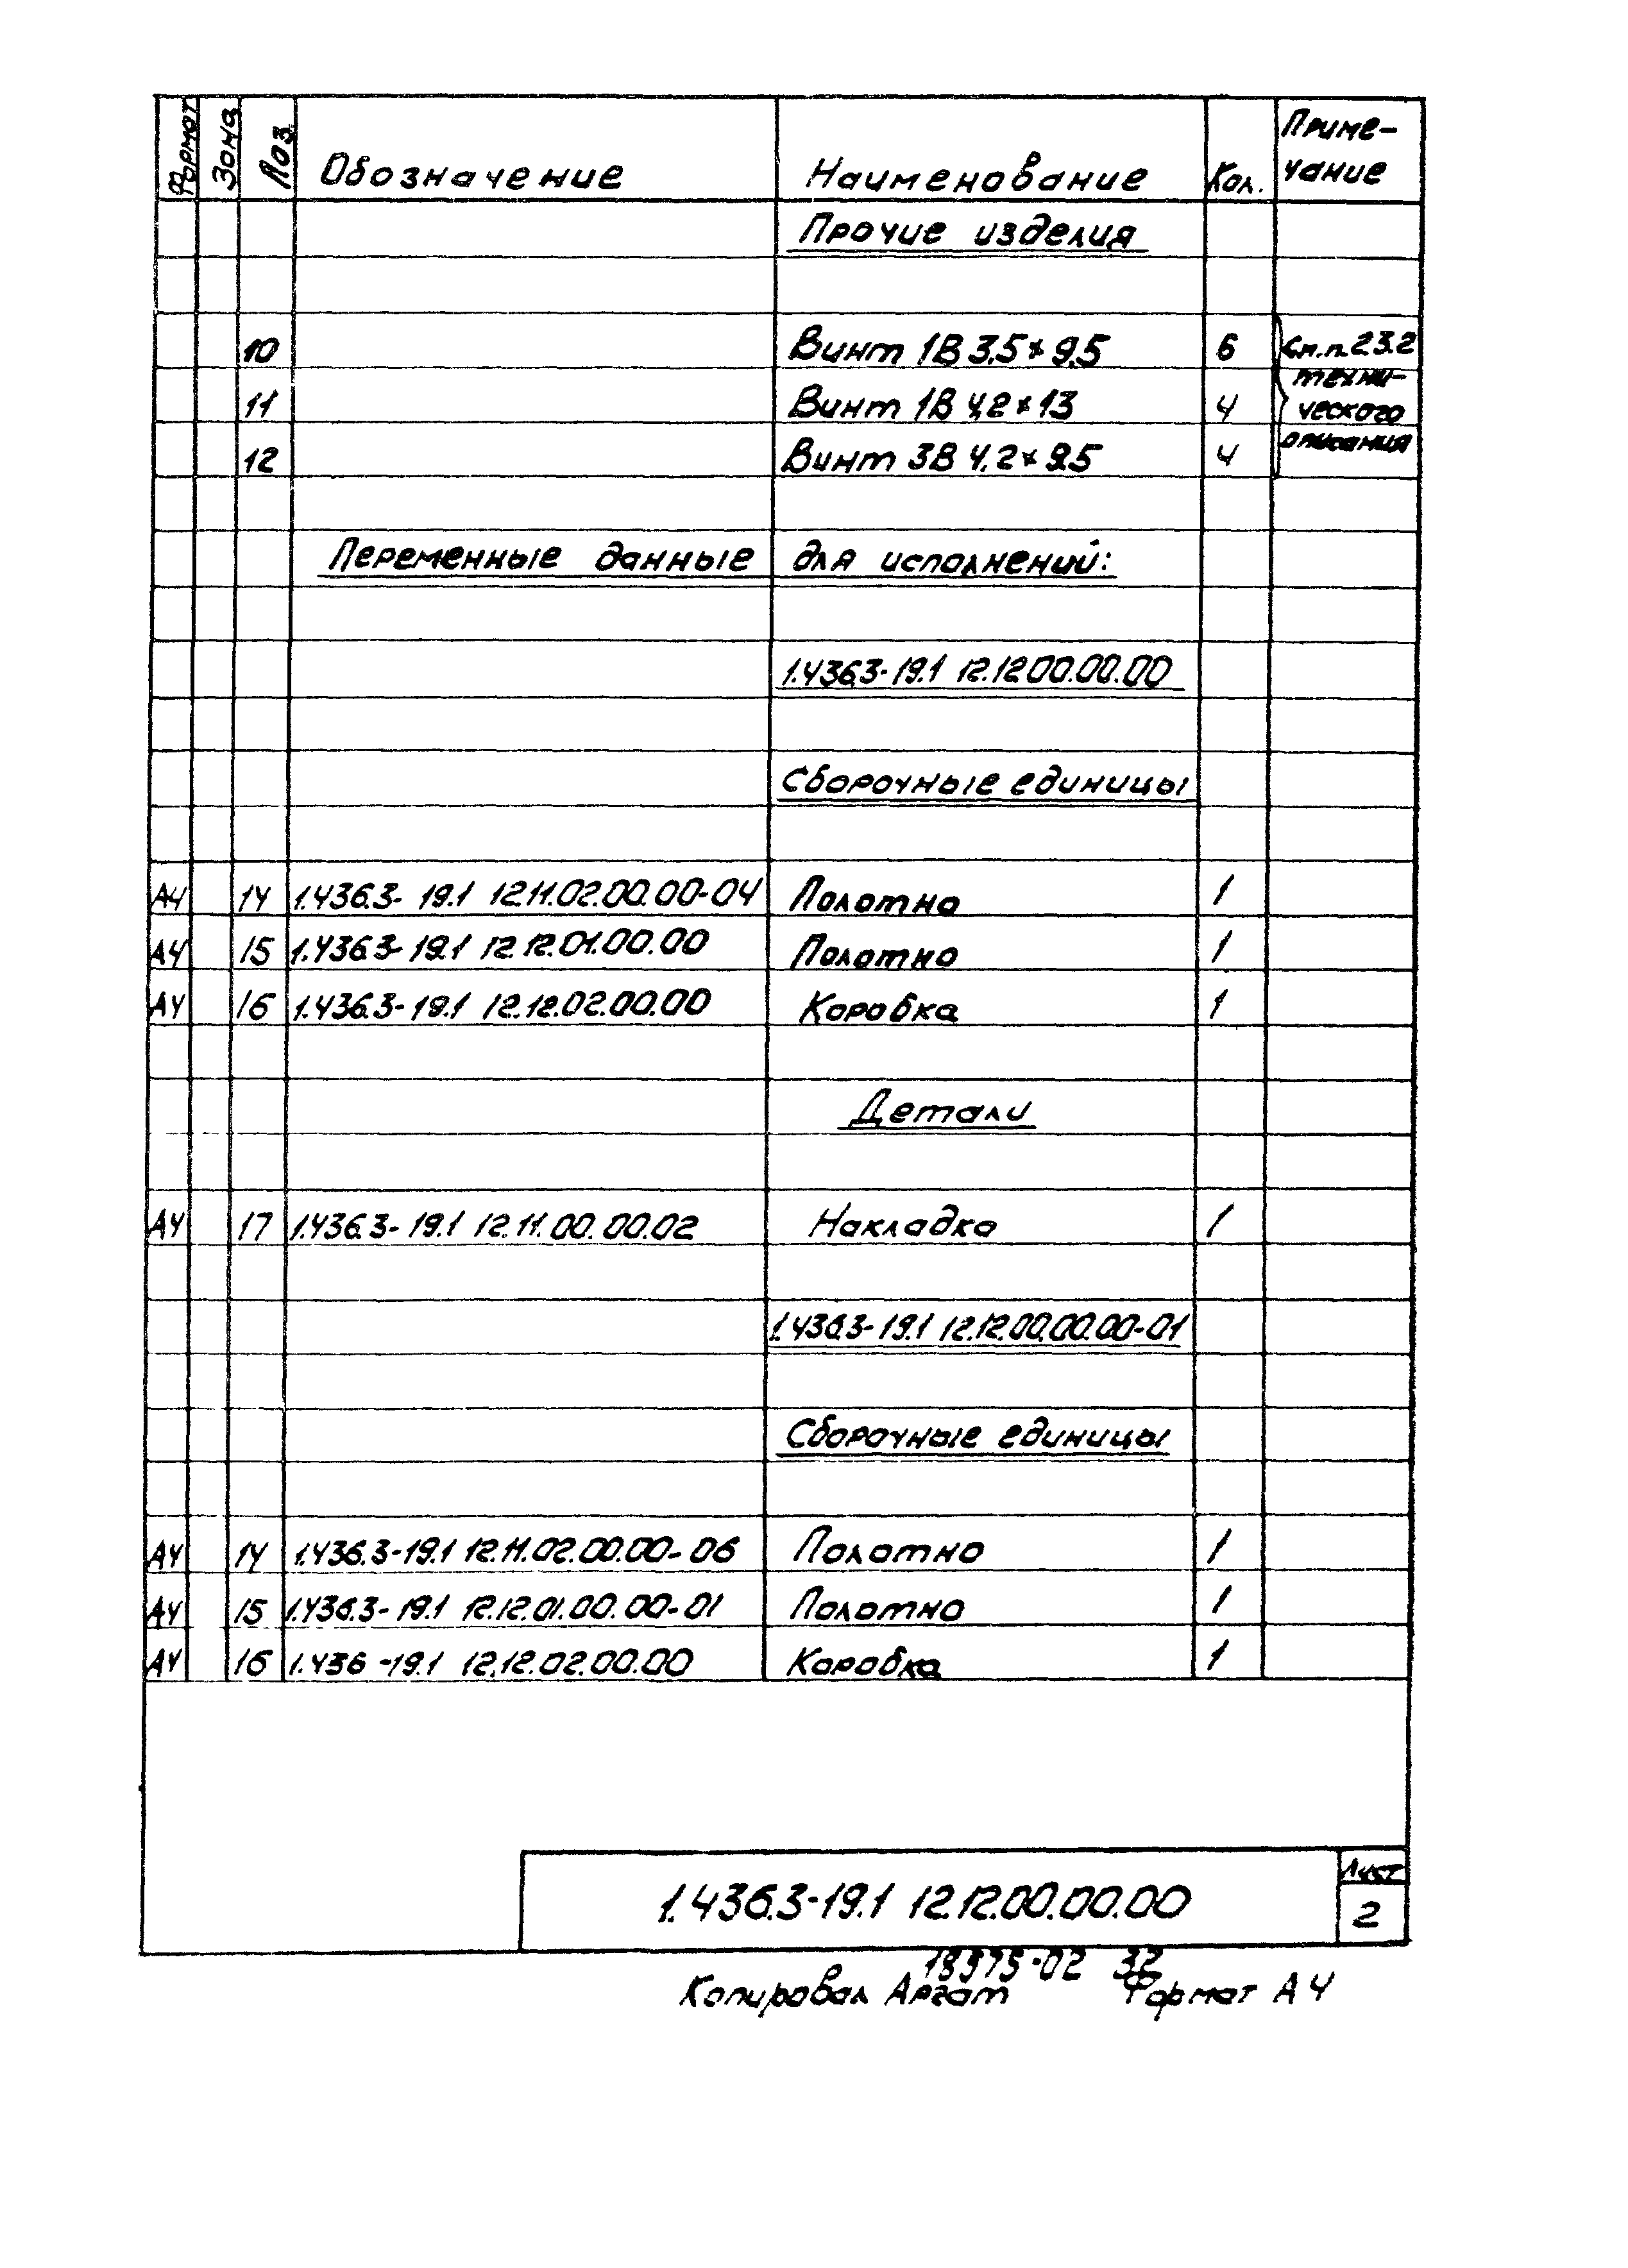 Формат Зона Поз. Обозначение Наименование Кол. Приме-
чание
Прочие изделия
10 Винт 1В 3,5×9,5 6 См.п. 2.3.2
11 Винт 1В 4,2×13 4 техни-
ческого
12 Винт 3В 4,2×9,5 4 описания
Переменные данные для исполнений:
1.436.3-19.1 12.12.00.00.00
Сборочные единицы
А4 14 1.436.3-19.1 12.11.02.00.00-04 Полотно 1
А4 15 1.436.3-19.1 12.12.01.00.00 Полотно 1
А4 16 1.436.3-19.1 12.12.02.00.00 Коробка 1
Детали
А4 17 1.436.3-19.1 12.11.00.00.02 Накладка 1
1.436.3-19.1 12.12.00.00.00-01
Сборочные единицы
А4 14 1.436.3-19.1 12.11.02.00.00-06 Полотно 1
А4 15 1.436.3-19.1 12.12.01.00.00-01 Полотно 1
А4 16 1.436-19.1 12.12.02.00.00 Коробка 1
1.436.3-19.1 12.12.00.00.00 Лист
2
18975-02 32
Копировал Аргат Формат А4